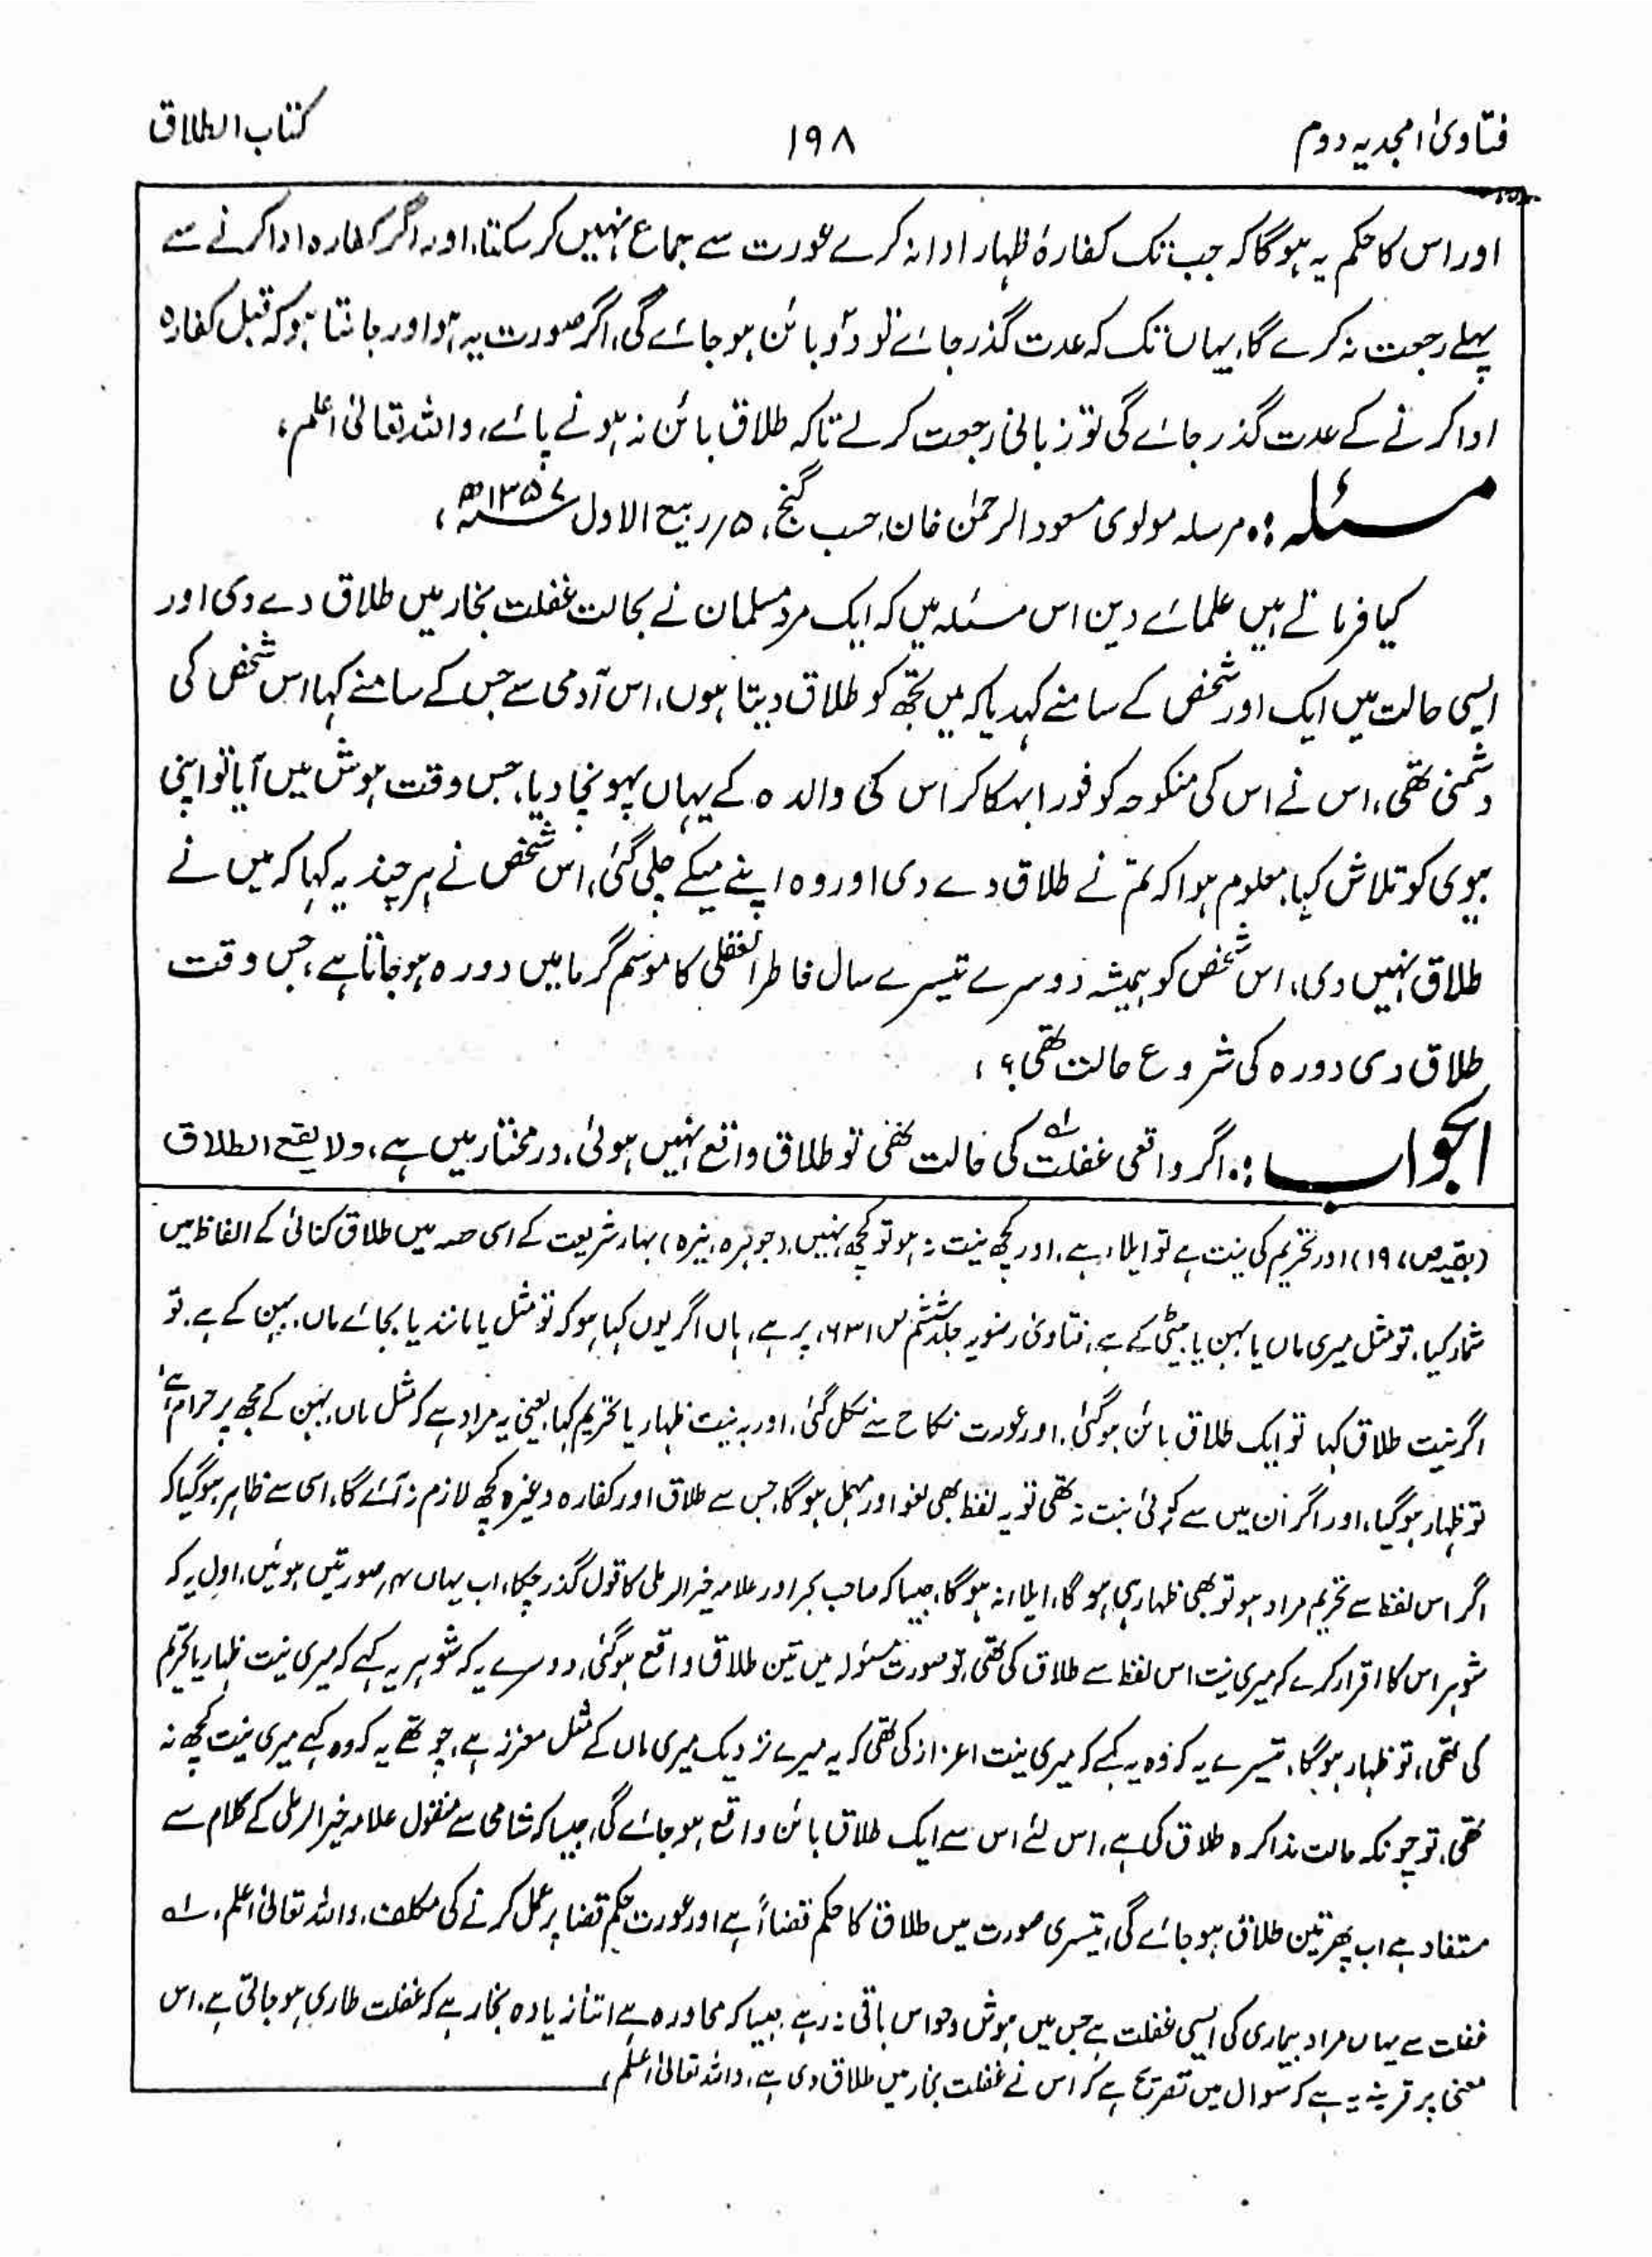 فتاویٰ امجدیہ دوم ۱۹۸ کتاب الطلاق
اور اس کا حکم یہ ہوگا کہ جب تک کفارۂ ظہار ادا نہ کرے عورت سے جماع نہیں کر سکتا، اور اگر کفارہ ادا کرنے سے
پہلے رجعت نہ کرے گا، یہاں تک کہ عدت گذر جائے تو دو بائن ہو جائے گی، اگر صورت یہ ہو اور جانتا ہو کہ قبل کفارہ
ادا کرنے کے عدت گذر جائے گی تو زبانی رجعت کر لے تاکہ طلاق بائن نہ ہونے پائے، واللہ تعالیٰ اعلم،
مسئلہ :۔ مرسلہ مولوی مسعود الرحمٰن خان، حبیب گنج، ۵/ ربیع الاول ۱۳۵۷ھ،
کیا فرماتے ہیں علمائے دین اس مسئلہ میں کہ ایک مرد مسلمان نے بحالت غفلت بخار میں طلاق دے دی اور
ایسی حالت میں ایک اور شخص کے سامنے کہدیا کہ میں تجھ کو طلاق دیتا ہوں، اس آدمی سے جس کے سامنے کہا اس شخص کی
دشمنی تھی، اس نے اس کی منکوحہ کو فورا بہکا کر اس کی والدہ کے یہاں پہونچا دیا، جس وقت ہوش میں آیا تو اپنی
بیوی کو تلاش کیا، معلوم ہوا کہ تم نے طلاق دے دی اور وہ اپنے میکے چلی گئی، اس شخص نے ہر چند یہ کہا کہ میں نے
طلاق نہیں دی، اس شخص کو ہمیشہ دوسرے تیسرے سال فاطر العقلی کا موسم گرما میں دورہ ہو جاتا ہے، جس وقت
طلاق دی دورہ کی شروع حالت تھی؟،
الجواب :۔ اگر واقعی غفلت لہ کی حالت تھی تو طلاق واقع نہیں ہوئی، در مختار میں ہے، ولا یقع الطلاق
(بقیہ ص ۱۹۷) اور تحریم کی نیت ہے تو ایلاء ہے، اور کچھ نیت نہ ہو تو کچھ نہیں، (جوہرہ، نیرہ) بہار شریعت کے اسی حصہ میں طلاق کنائی کے الفاظ میں
شمار کیا، تو مثل میری ماں یا بہن یا بیٹی کے ہے، فتاویٰ رضویہ جلد ششم ص ۶۳۱، پر ہے، ہاں اگر یوں کہا ہو کہ تو مثل یا مانند یا بجائے ماں، بہن کے ہے، تو
اگر نیت طلاق کہا تو ایک طلاق بائن ہو گئی، اور عورت نکاح سے نکل گئی، اور بہ نیت ظہار یا تحریم کہا، یعنی یہ مراد ہے کہ مثل ماں، بہن کے مجھ پر حرام ہے،
تو ظہار ہو گیا، اور اگر ان میں سے کوئی نیت نہ تھی تو یہ لفظ بھی لغو اور مہمل ہو گا، جس سے طلاق اور کفارہ وغیرہ کچھ لازم نہ آئے گا، اسی سے ظاہر ہو گیا کہ
اگر اس لفظ سے تحریم مراد ہو تو بھی ظہار ہی ہو گا، ایلاء نہ ہو گا، جیسا کہ صاحب بحر اور علامہ خیر الرملی کا قول گذر چکا، اب یہاں ۴، صورتیں ہوئیں، اول یہ کہ
شوہر اس کا اقرار کرے کہ میری نیت اس لفظ سے طلاق کی تھی، تو صورت مسئولہ میں تین طلاق واقع ہو گئی، دوسرے یہ کہ شوہر یہ کہے کہ میری نیت ظہار یا تحریم
کی تھی، تو ظہار ہو گا، تیسرے یہ کہ وہ یہ کہے کہ میری نیت اعزاز کی تھی کہ یہ میرے نزدیک میری ماں کے مثل معززہ ہے، چوتھے یہ کہ وہ کہے میری نیت کچھ نہ
تھی، تو چونکہ حالت مذاکرہ طلاق کی ہے، اس لئے اس سے ایک طلاق بائن واقع ہو جائے گی، جیسا کہ شامی سے منقول علامہ خیر الرملی کے کلام سے
مستفاد ہے اب پھر تین طلاق ہو جائے گی، تیسری صورت میں طلاق کا حکم قضاءً ہے اور عورت حکم قضا پر عمل کرنے کی مکلف، واللہ تعالیٰ اعلم، لہ
غفلت سے یہاں مراد بیماری کی ایسی غفلت ہے جس میں ہوش و حواس باقی نہ رہے، جیسا کہ محاورہ ہے اتنا زیادہ بخار ہے کہ غفلت طاری ہو جاتی ہے، اس
معنی پر قرینہ یہ ہے کہ سوال میں تصریح ہے کہ اس نے غفلت بخار میں طلاق دی ہے، واللہ تعالیٰ اعلم،